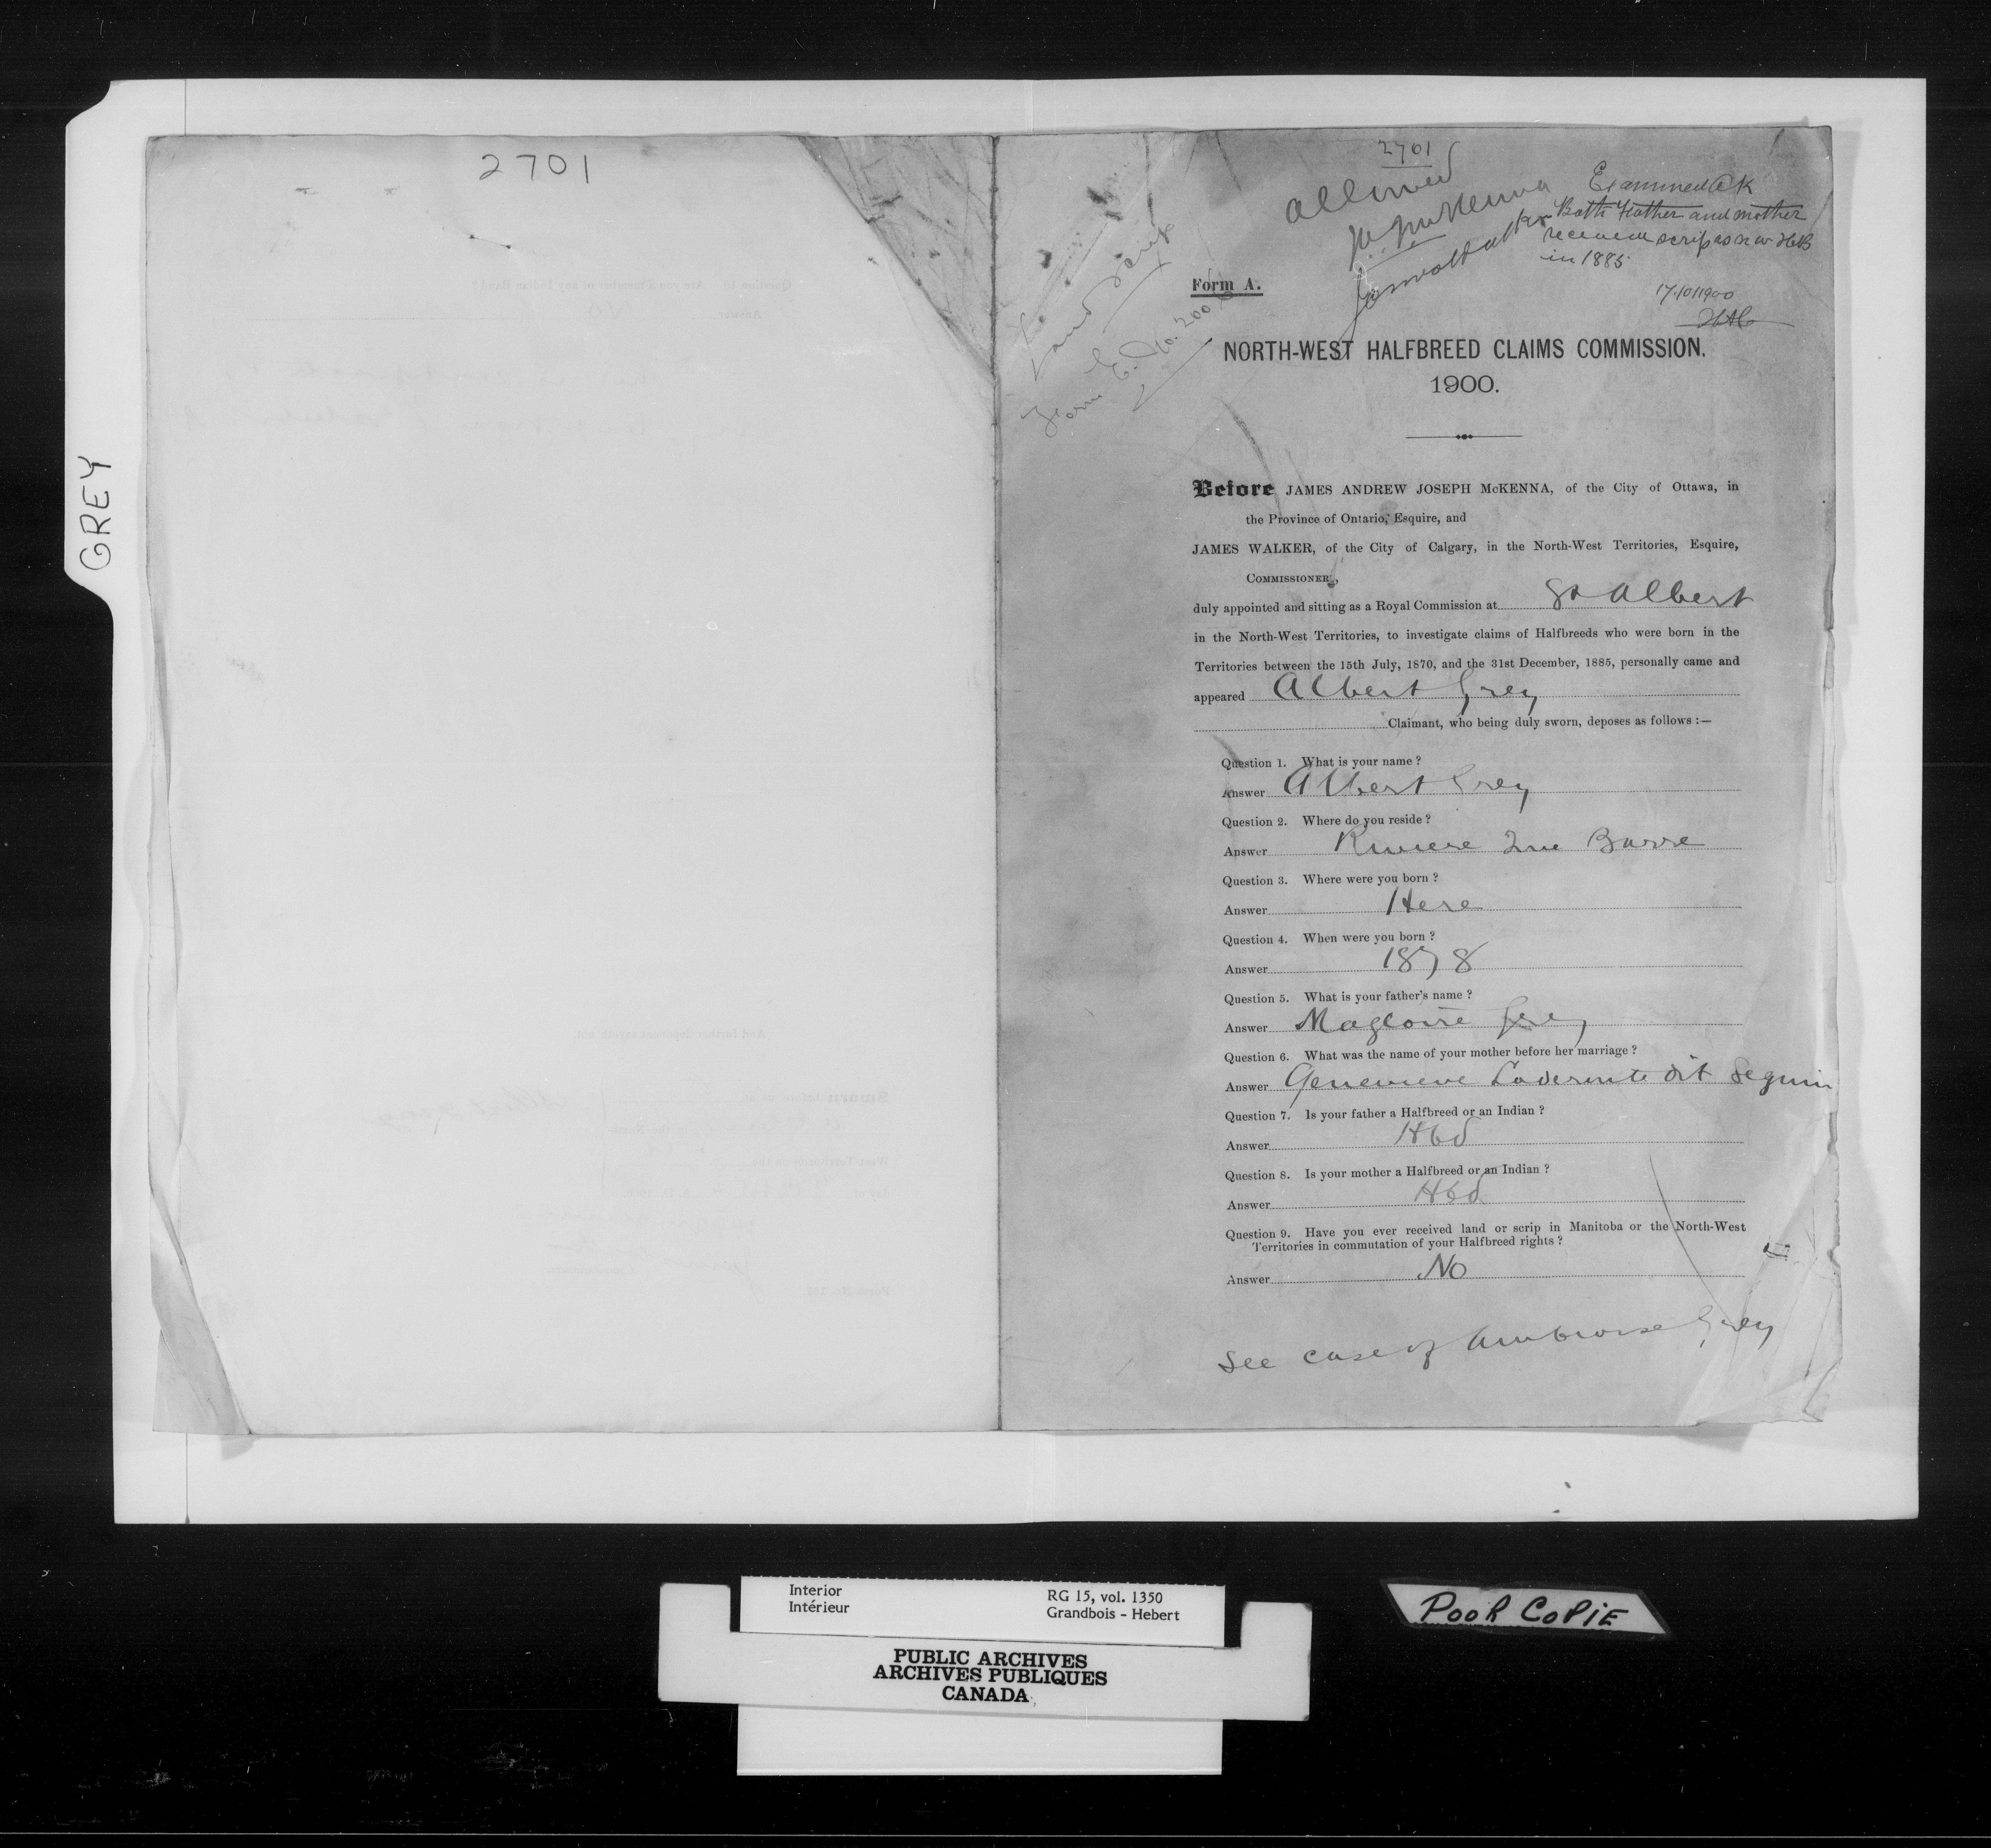 GREY
2701
2701
allowed
JA McKenna
James Walker
Examined AK
Both Father and mother
received scrip as N W HB
in 1885
17.10.1900
Land Scrip
Form E. No. 200
Form A.
NORTH-WEST HALFBREED CLAIMS COMMISSION.
1900.
Before JAMES ANDREW JOSEPH McKENNA, of the City of Ottawa, in
the Province of Ontario, Esquire, and
JAMES WALKER, of the City of Calgary, in the North-West Territories, Esquire,
COMMISSIONER,
duly appointed and sitting as a Royal Commission at St Albert
in the North-West Territories, to investigate claims of Halfbreeds who were born in the
Territories between the 15th July, 1870, and the 31st December, 1885, personally came and
appeared Albert Grey
Claimant, who being duly sworn, deposes as follows :—
Question 1. What is your name ?
Answer Albert Grey
Question 2. Where do you reside ?
Answer Riviere Que Barre
Question 3. Where were you born ?
Answer Here
Question 4. When were you born ?
Answer 1878
Question 5. What is your father's name ?
Answer Magloire Grey
Question 6. What was the name of your mother before her marriage ?
Answer Genevieve Laderoute dit Seguin
Question 7. Is your father a Halfbreed or an Indian ?
Answer Hbd
Question 8. Is your mother a Halfbreed or an Indian ?
Answer Hbd
Question 9. Have you ever received land or scrip in Manitoba or the North-West
Territories in commutation of your Halfbreed rights ?
Answer No
See case of Ambroise Grey
Interior
Intérieur
RG 15, vol. 1350
Grandbois - Hebert
PUBLIC ARCHIVES
ARCHIVES PUBLIQUES
CANADA
POOR COPIE